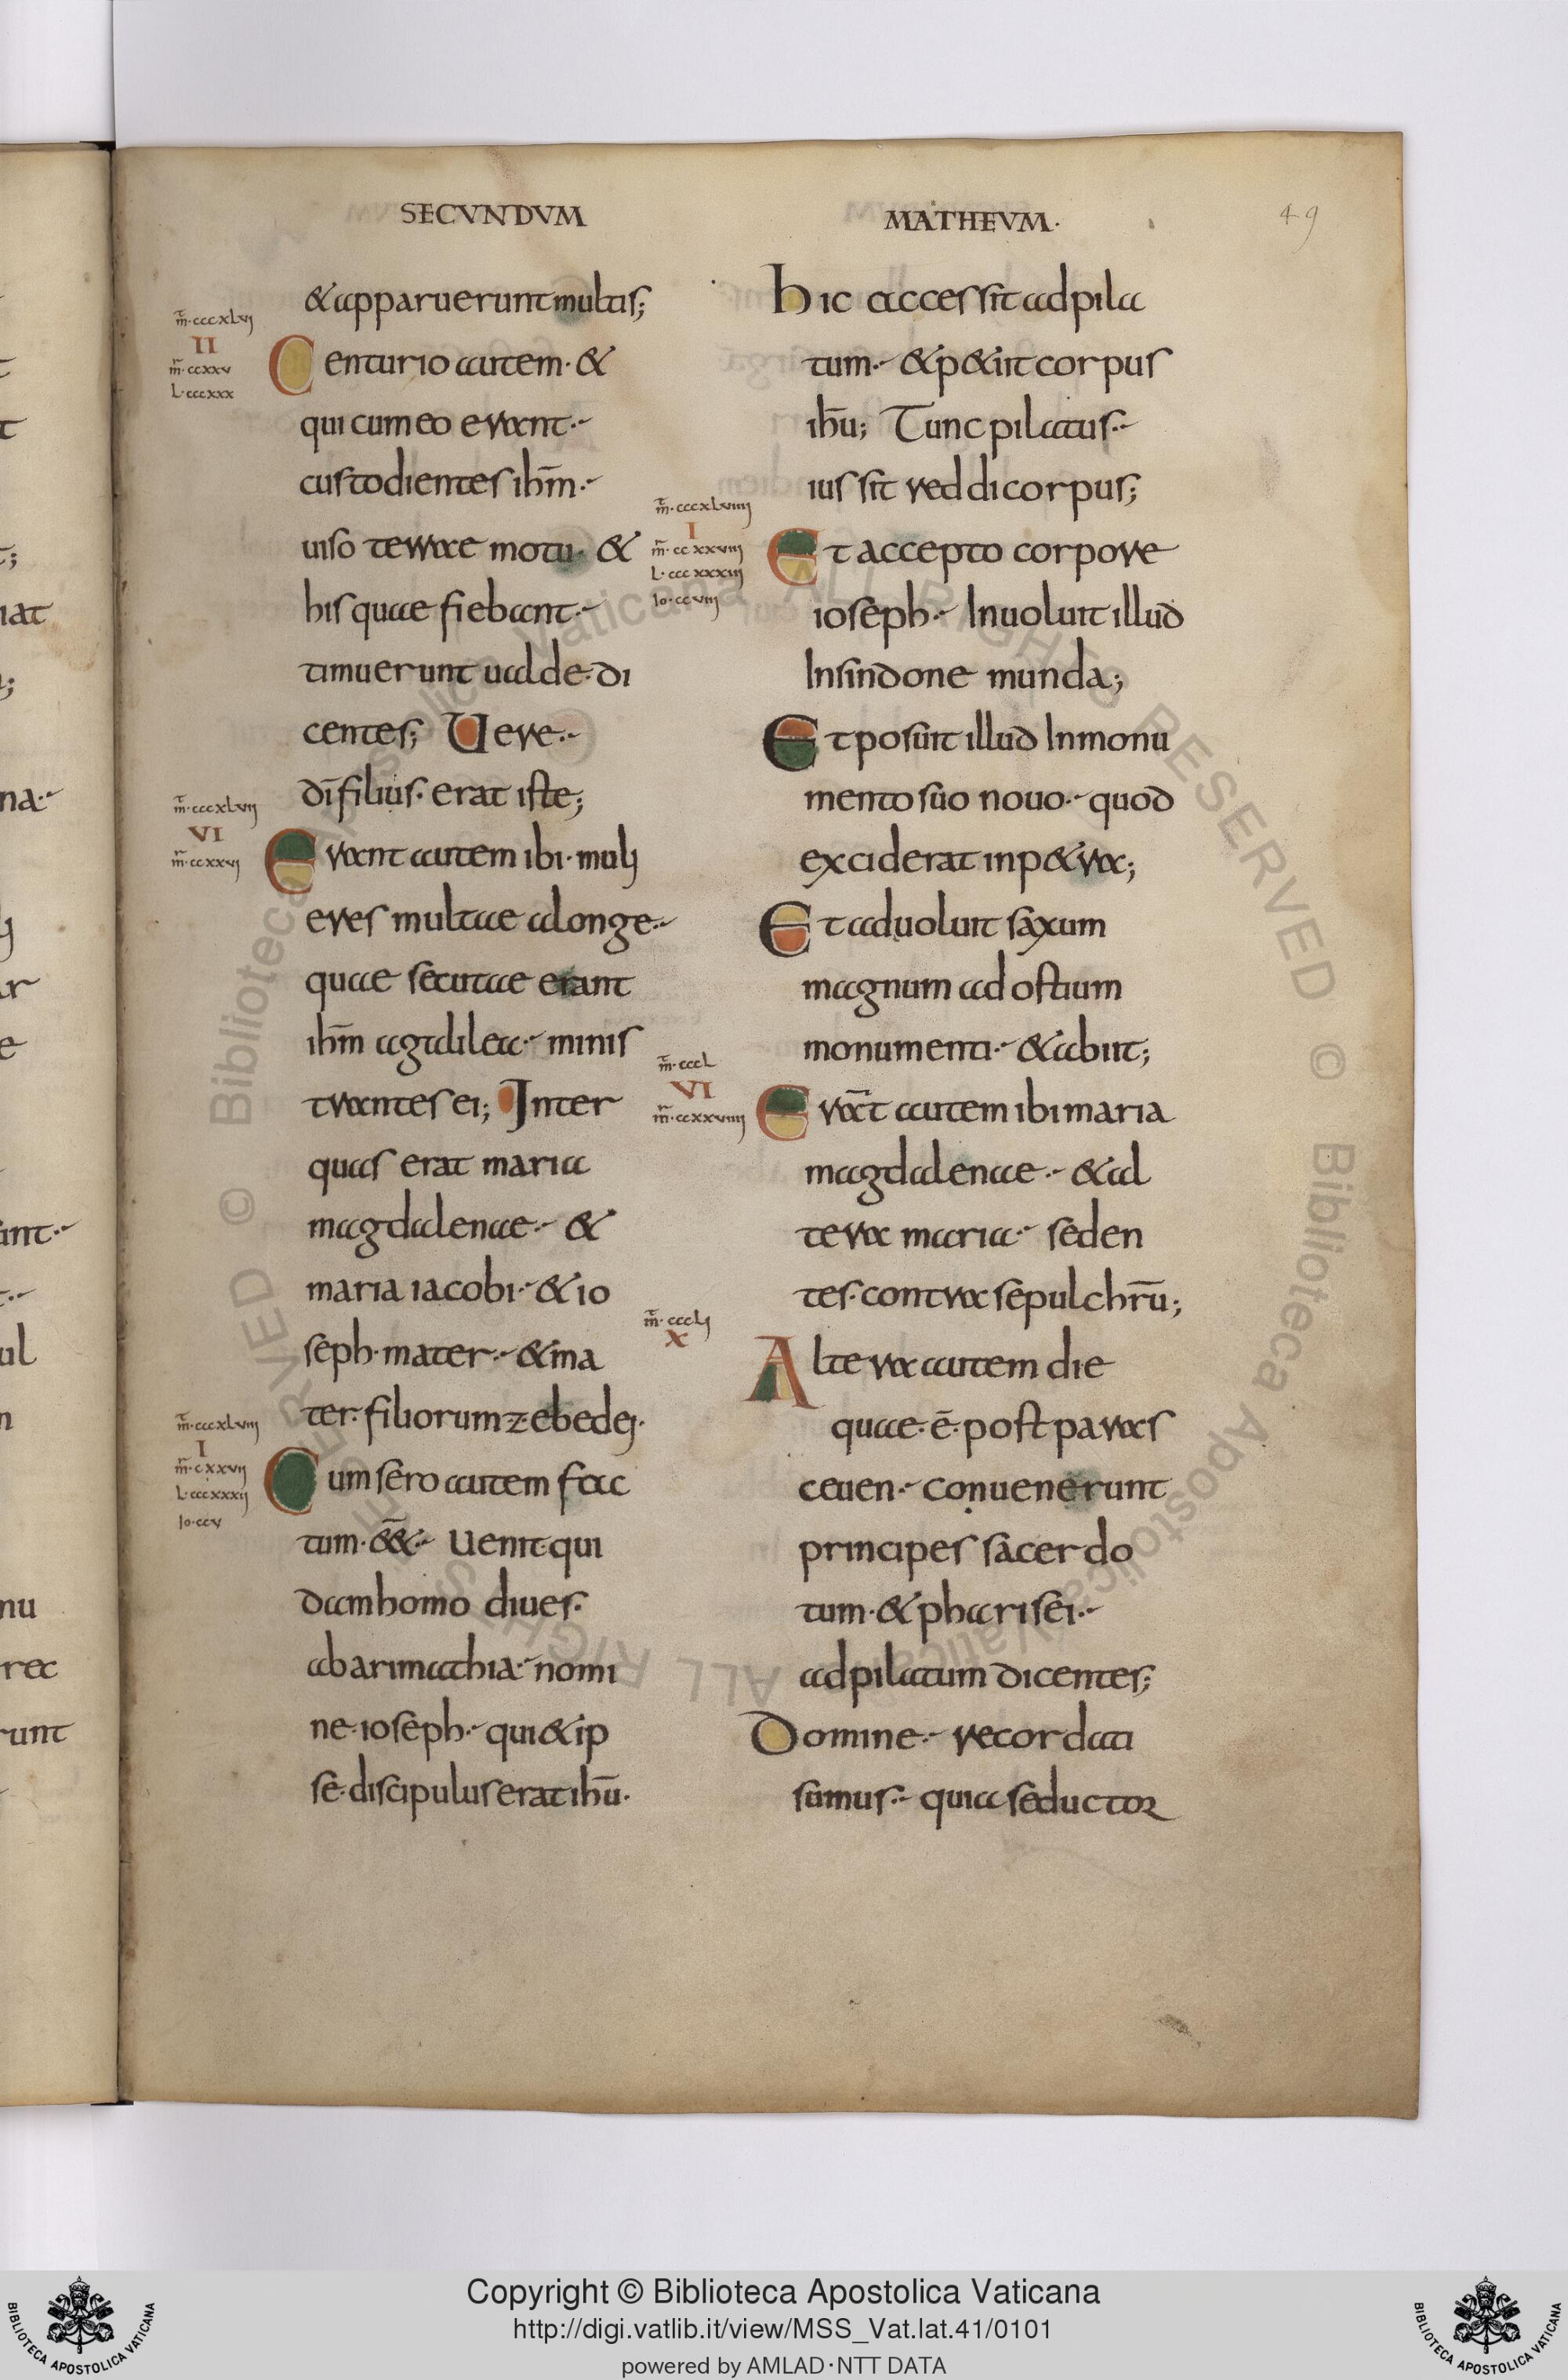 SECVNDVM
MATHEVM·
49
& apparuerunt multis;
m̄·cccxlvj
II
m̄·ccxxv
L·cccxxx
Centurio autem·&
qui cum eo erant·
custodientes ih̄m·
uiso terrae motu·&
his quae fiebant·
timuerunt ualde·di
centes; Uere·
dī filius·erat iste;
m̄·cccxlvij
VI
m̄·ccxxvj
Erant autem ibi·mulj
eres multae a longe·
quae secutae erant
ih̄m a galilea·minis
trantes ei; Inter
quas erat maria
magdalenae·&
maria iacobi·& io
seph·mater·& ma
ter·filiorum zebedej·
m̄·cccxlviij
I
m̄·cxxvij
L·cccxxxij
Io·ccv
Cum sero autem fac
tum·e&̄·Uenit·qui
dam homo diues·
ab arimathia·nomi
ne·ioseph·qui & ip
se·discipulus erat ih̄u·
hic accessit ad pila
tum·& p&iit corpus
ih̄u; Tunc pilatus·
iussit reddi corpus;
m̄·cccxlviiij
I
m̄·ccxxviij
L·cccxxxiij
Io·ccviij
Et accepto corpore
ioseph·Inuoluit illud
In sindone munda;
Et posuit illud In monu
mento suo nouo·quod
exciderat in p&ra;
Et aduoluit saxum
magnum ad ostium
monumenti·& abiit;
m̄·cccl
VI
m̄·ccxxviiij
Erāt autem ibi maria
magdalenae·& al
tera maria·seden
tes·contra sepulchrū;
m̄·cccLj
X
Altera autem die
quae·ē·post paras
ceuen·conuenerunt
principes sacerdo
tum·& pharisei·
ad pilatum dicentes;
Domine·recordati
sumus·quia seductor
© Biblioteca Apostolica Vaticana ALL RIGHTS RESERVED © Biblioteca Apostolica Vaticana ALL RIGHTS RESERVED
Copyright © Biblioteca Apostolica Vaticana
http://digi.vatlib.it/view/MSS_Vat.lat.41/0101
powered by AMLAD·NTT DATA
BIBLIOTECA APOSTOLICA VATICANA
BIBLIOTECA APOSTOLICA VATICANA